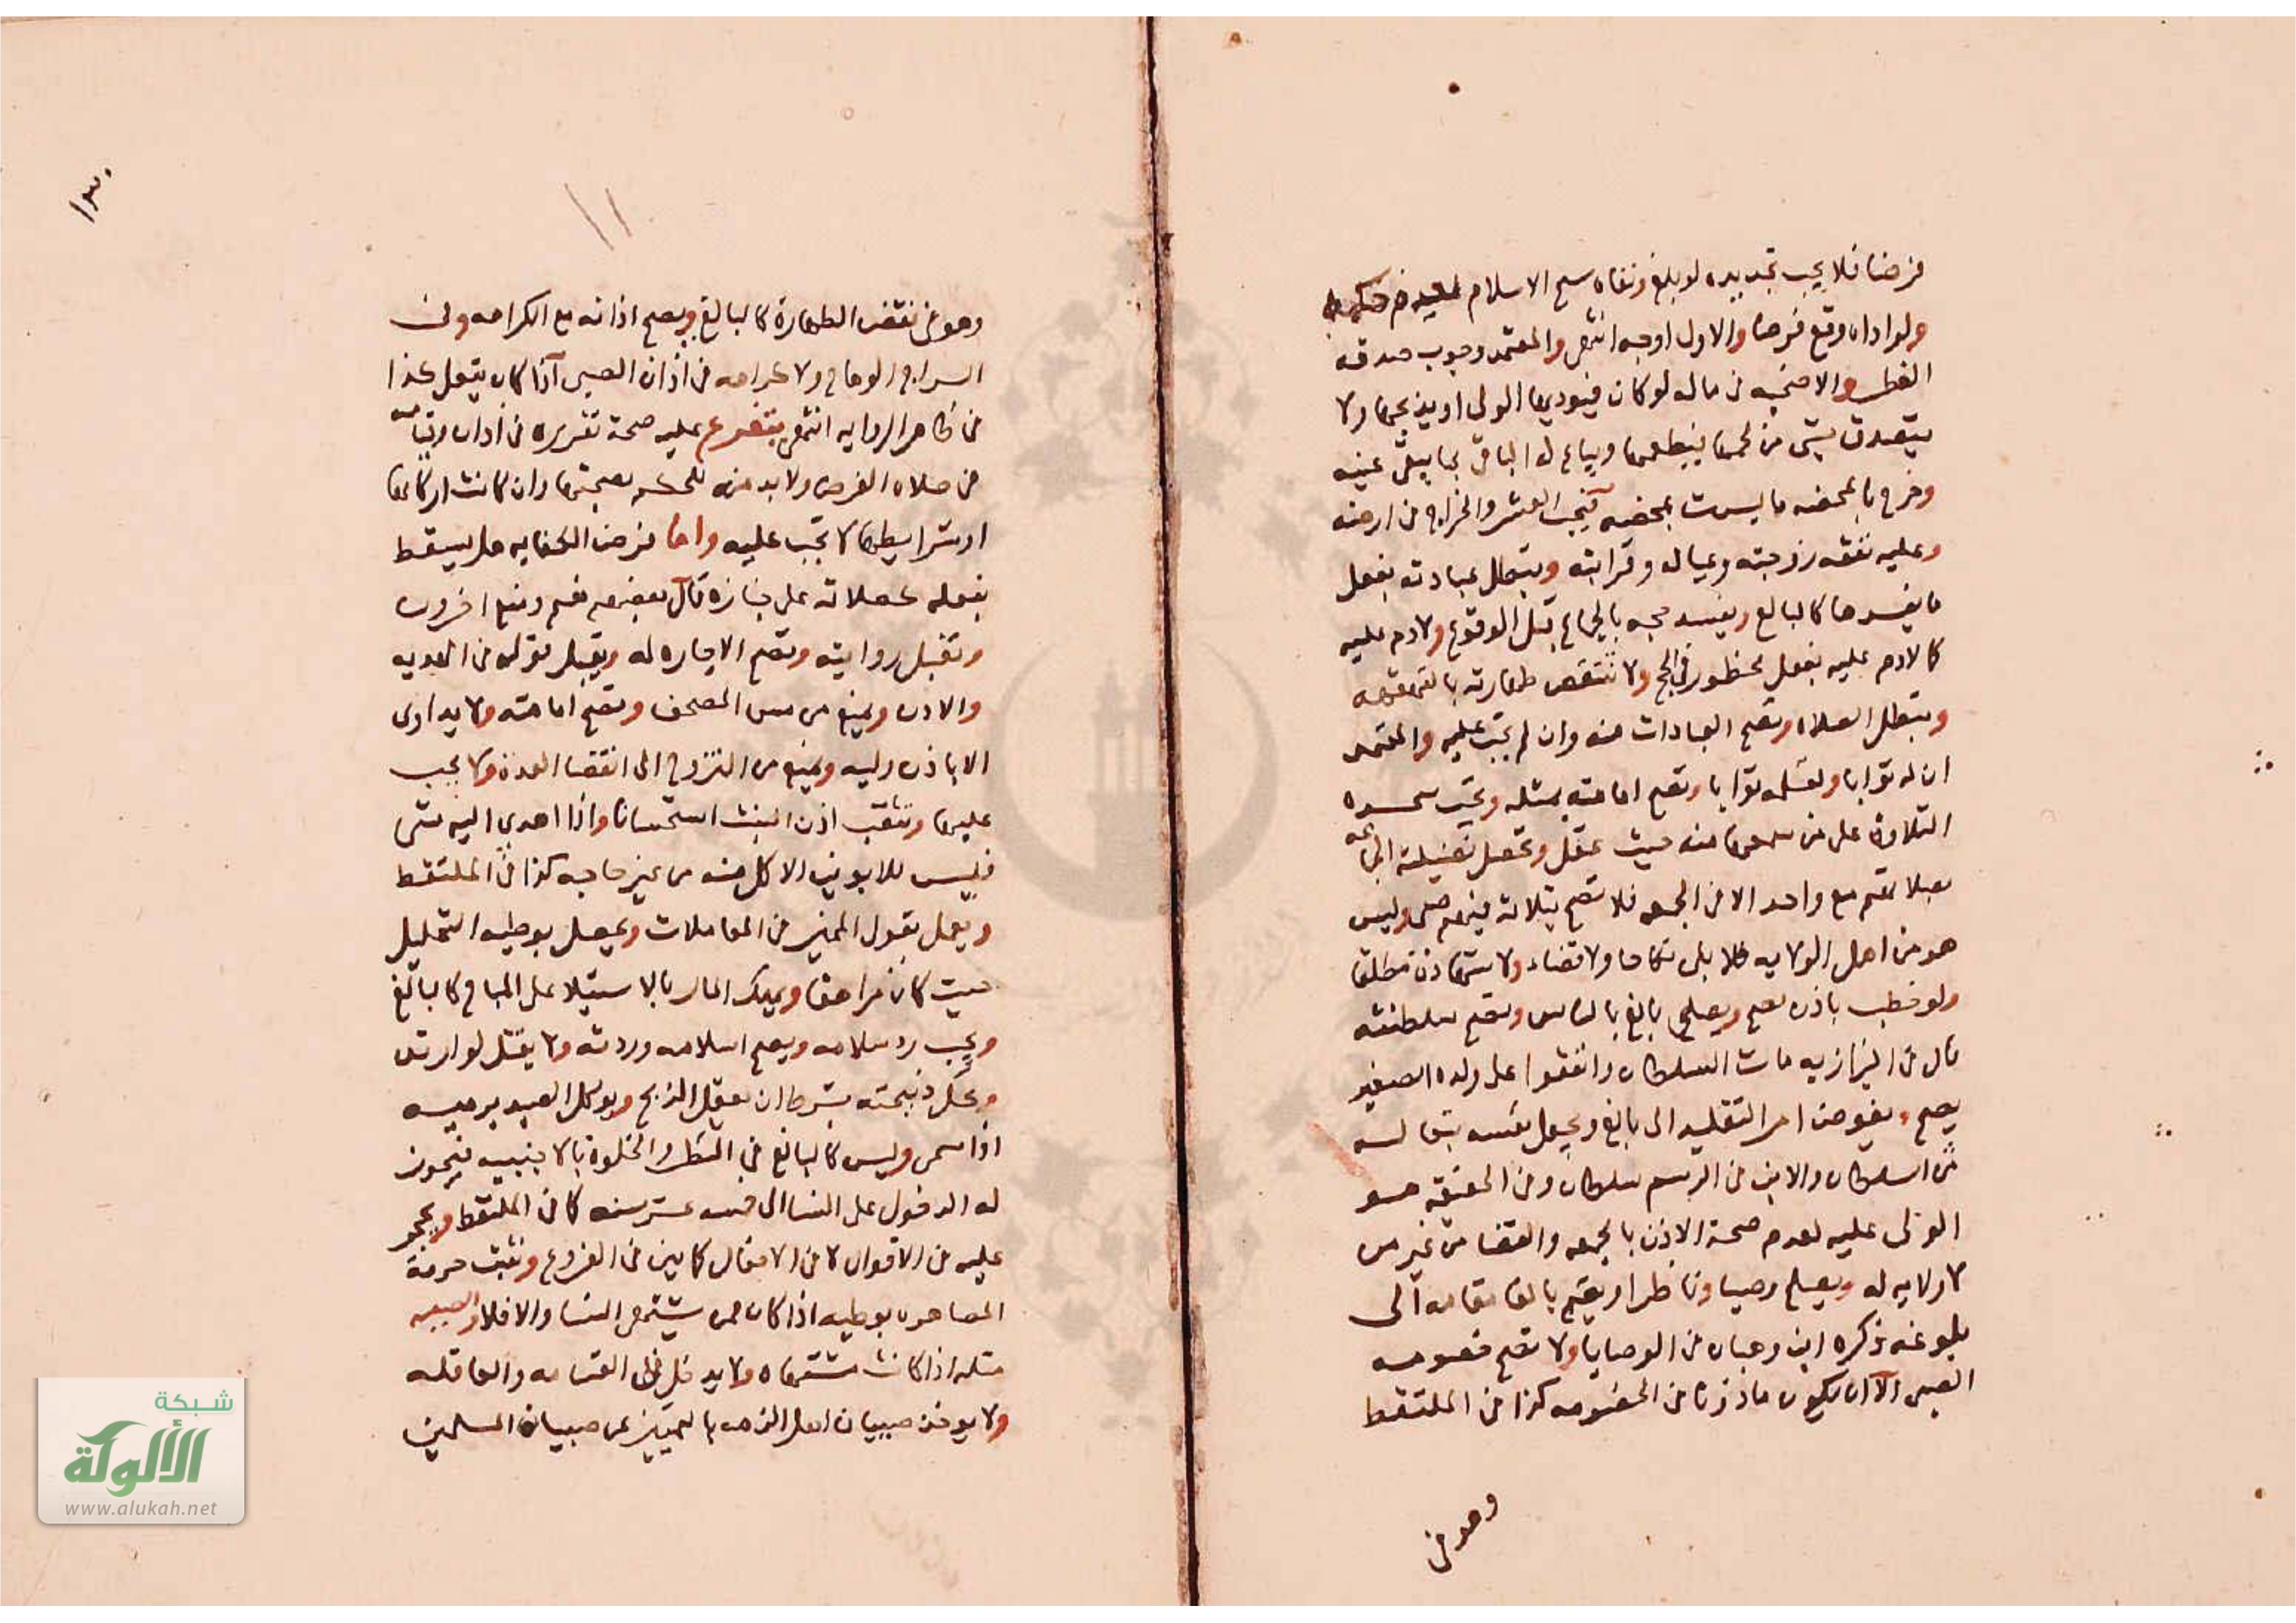 فرضا فلا يجب تجديده لو بلغ ونفاه شمس الاسلام لعدم حكمه
ولو اداه وقع فرضا والاول اوجه انتهى والمعتمد وجوب صدقة
الفطر والاضحيه في ماله لو كان فيوديها الولي او يذبحها ولا
يتصدق بشي من لحمها فيطعمها ويبتاع له الباقي بما يبقى عينه
وخرج بالمحضه ما ليست بمحضه فيجب العشر والخراج في ارضه
وعليه نفقه زوجته وعياله وقرابته وتبطل عبادته بفعل
ما يفسدها كالبالغ ويفسد حجه بالجماع قبل الوقوع ولا دم عليه
كا لا دم عليه بفعل محظور في الحج ولا تنتقض طهارته بالقهقهه
وتبطل الصلاه وتصح العبادات منه وان لم تجب عليه والمعتمد
ان له ثوابا ولمعلمه ثوابا وتصح امامته بمثله وتجب سجده
التلاوة على من سمعها منه حيث عقل وتحصل فضيلة الجماعه
بصلاتهم مع واحد الا في الجمعه فلا تصح بثلاثه فيهم صبي وليس
هو من اهل الولايه فلا يلي نكاحا ولا قضاء ولا شهادة مطلقا
ولو خطب باذن صح ويصلي بالغ بالناس وتصح سلطنته
قال في البزازيه مات السلطان واتفقوا على ولده الصغير
يصح ويفوض امر التقليد الى بالغ ويجعل نفسه تبعا له
من السلطان والابن في الرسم سلطان وفي الحقيقه هو
الوالي عليه لعدم صحة الاذن بالجمعه والقضا من غير من
لا ولايه له ويصلح وصيا وناظرا ويقيم بالغا مقامه الى
بلوغه ذكره ابن وهبان في الوصايا ولا تصح خصومه
الصبي الا ان يكون ماذونا في الخصومه كذا في الملتقط
وهو في
١٣٠
وهو في نقض الطهارة كالبالغ ويصح اذانه مع الكراهه وفي
السراج الوهاج ولا كراهه في اذان الصبي اذا كان يعقل هذا
في ظاهر الروايه انتهى يتفرع عليه صحة تقريره في اذان وقيامه
في صلاه الفرض ولا بد منه للحكم بصحتها وان كانت اركانها
او شرايطها لا تجب عليه واما فرض الكفايه هل يسقط
بفعله كصلاته على جنازة قال بعضهم نعم ومنع اخرون
وتقبل روايته وتصح الاجاره له ويقبل قوله في الهديه
والاذن ويمنع من مس المصحف وتصح امامته ولا يداوى
الا باذن وليه ويمنع من التزوج الى انقضا العدة ولا تجب
عليها وتثقب اذن البنت استحسانا واذا اهدى اليه شي
فليس للابوين الاكل منه من غير حاجه كذا في الملتقط
ويعمل بقول المميز في المعاملات ويحصل بوطيه التحليل
حيث كان مراهقا ويملك المال بالاستيلا على المباح كالبالغ
ويجب رد سلامه ويصح اسلامه وردته ولا يقتل لو ارتد
وتحل ذبيحته بشرط ان يعقل الذبح ويوكل الصيد برميه
اذا سمى وليس كالبالغ في النظر والخلوة بالاجنبيه فيجوز
له الدخول على النسا الى خمسه عشر سنه كا في الملتقط ويحجر
عليه في الاقوال لا في الافعال كا بين في الفروع وتثبت حرمة
المصاهره بوطيه اذا كان ممن يشتهى النسا والا فلا والصبيه
مثله اذا كانت مشتهاه ولا يدخل في القسامه والعاقله
ولا يوخذ صبيان اهل الذمه بالتمييز عن صبيان المسلمين
شبكة
الألوكة
www.alukah.net